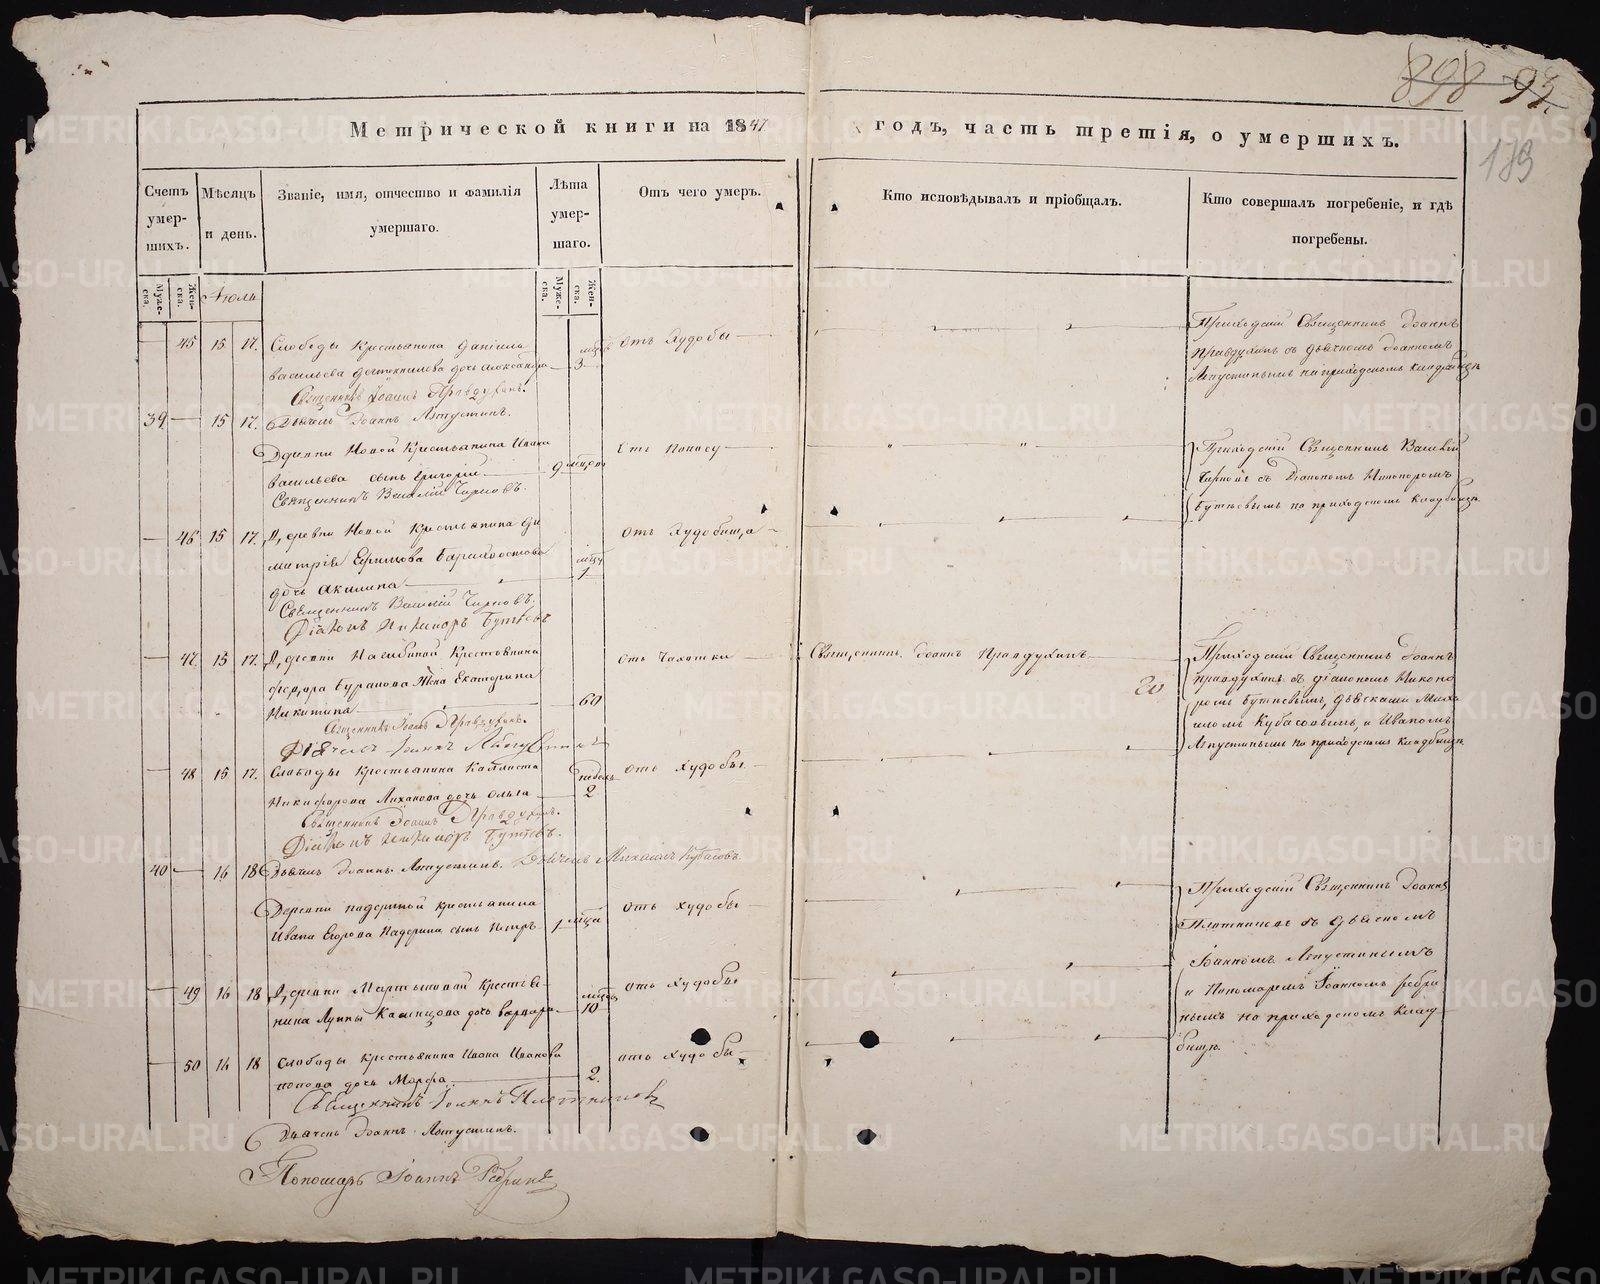 898 93
179
Метрической книги на 1847 годъ, часть третія, о умершихъ.
Счетъ умер-шихъ.
Мѣсяцъ и день.
Званіе, имя, отчество и фамилія умершаго.
Лѣта умер-шаго.
Отъ чего умеръ.
Кто исповѣдывалъ и пріобщалъ.
Кто совершалъ погребеніе, и гдѣ погребены.
Муже-ска.
Жен-ска.
Муже-ска.
Жен-ска.
Іюль
45 15 17. Слободы крестьянина Даніила
Васильева дочь Александра 3
Отъ худобы
Приходскій Священникъ Іоаннъ
Правдухинъ съ дьячкомъ Іоанномъ
Лепустинымъ на приходскомъ кладбищѣ
Священникъ Іоаннъ Правдухинъ.
Дьячекъ Іоаннъ Лепустинъ.
39 15 17.
Деревни Новой крестьянина Ивана
Васильева сынъ Григорій 9 мѣсяц.
Отъ поносу
Приходскій Священникъ Василій
Чирковъ съ Діакономъ Никаноромъ
Бутковымъ на приходскомъ кладбищѣ
Священникъ Василій Чирковъ.
46 15 17. Деревни Новой крестьянина Ди
митрія Ефимова
дочь Акилина 1
Отъ худобища
Священникъ Василій Чирковъ.
Діаконъ Никаноръ Бутковъ
47 15 17. Деревни Нагибиной крестьянина
Федора Буранова жена Екатерина
Никитина 60
Отъ чахотки
Священникъ Іоаннъ Правдухинъ
20
Приходскій Священникъ Іоаннъ
Правдухинъ съ діакономъ Никано
ромъ Бутковымъ, дьячками Миха
иломъ Кубасовымъ и Иваномъ
Лепустинымъ на приходскомъ кладбищѣ
Священникъ Іоаннъ Правдухинъ.
Дьячекъ Іоаннъ Лепустинъ
48 15 17. Слободы крестьянина Каллиста
Никифорова Лиханова дочь Ольга
недѣль 2
Отъ худобы
Священникъ Іоаннъ Правдухинъ.
Діаконъ Никаноръ Бутковъ.
Дьячекъ Іоаннъ Лепустинъ. Дьячекъ Михаилъ Кубасовъ
40 16 18
Деревни Падериной крестьянина
Ивана Егорова Падерина сынъ Петръ 1 мѣсяца
Отъ худобы
Приходскій Священникъ Іоаннъ
Плотниковъ съ дьячкомъ
Іоанномъ Лепустинымъ
и Пономаремъ Іоанномъ Ребри
нымъ на приходскомъ клад
бищѣ.
49 16 18 Деревни Мартыновой крестья
нина Луппы дочь Варвара 10
Отъ худобы
50 16 18 Слободы крестьянина Ивана Иванова
Попова дочь Марфа 2.
Отъ худобы
Священникъ Іоаннъ Плотниковъ
Дьячекъ Іоаннъ Лепустинъ.
Пономарь Іоаннъ Ребринъ
METRIKI.GASO-URAL.RU